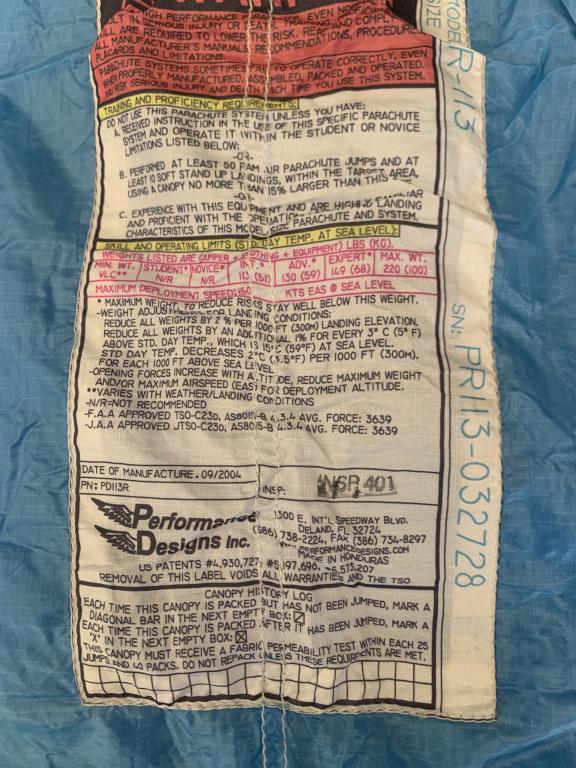 HIGH PERFORMANCE PARACHUTE, EVEN
ULT IN SERIOUS INJURY OR DEATH. TRAINING AND COMPL
ILL ARE REQUIRED TO LOWER THE RISK. READ PROCEDURE
ALL MANUFACTURER'S MANUALS RECOMMENDATIONS,
PLACARDS AND LIMITATIONS.
PARACHUTE SYSTEMS SOMETIMES FAIL TO OPERATE CORRECTLY, EVEN
WHEN PROPERLY MANUFACTURED, ASSEMBLED, PACKED AND OPERATED.
YOU RISK SERIOUS INJURY AND DEATH EACH TIME YOU USE THIS SYSTEM.
TRAINING AND PROFICIENCY REQUIREMENTS:
DO NOT USE THIS PARACHUTE SYSTEM UNLESS YOU HAVE:
A. RECEIVED INSTRUCTION IN THE USE OF THIS SPECIFIC PARACHUTE
SYSTEM AND OPERATE IT WITHIN THE STUDENT OR NOVICE
LIMITATIONS LISTED BELOW:
-OR-
B. PERFORMED AT LEAST 50 RAM AIR PARACHUTE JUMPS AND AT
LEAST 10 SOFT STAND UP LANDINGS, WITHIN THE TARGET AREA,
USING A CANOPY NO MORE THAN 15% LARGER THAN THIS
-OR-
C. EXPERIENCE WITH THIS EQUIPMENT AND ARE HIGHLY
AND PROFICIENT WITH THE OPERATION LANDING
CHARACTERISTICS OF THIS MODEL SIZE PARACHUTE AND SYSTEM.
SKILL AND OPERATING LIMITS (STD. DAY TEMP. AT SEA LEVEL):
WEIGHTS LISTED ARE (JUMPER + CLOTHING + EQUIPMENT) LBS (KG).
MIN. WT. STUDENT* NOVICE* INT.* ADV.* EXPERT* MAX. WT.
VLC** N/R N/R 113 (51) 130 (59) 149 (68) 220 (100)
MAXIMUM DEPLOYMENT SPEED: 150 KTS EAS @ SEA LEVEL
* MAXIMUM WEIGHT, TO REDUCE RISKS STAY WELL BELOW THIS WEIGHT.
-WEIGHT ADJUSTMENTS FOR LANDING CONDITIONS:
REDUCE ALL WEIGHTS BY 2 % PER 1000 FT (300M) LANDING ELEVATION.
REDUCE ALL WEIGHTS BY AN ADDITIONAL 1% FOR EVERY 3° C (5° F)
ABOVE STD. DAY TEMP., WHICH IS 15°C (59°F) AT SEA LEVEL.
STD DAY TEMP. DECREASES 2°C (3.5°F) PER 1000 FT (300M).
FOR EACH 1000 FT ABOVE SEA LEVEL
-OPENING FORCES INCREASE WITH ALTITUDE, REDUCE MAXIMUM WEIGHT
AND/OR MAXIMUM AIRSPEED (EAS) FOR DEPLOYMENT ALTITUDE.
**VARIES WITH WEATHER/LANDING CONDITIONS
-N/R=NOT RECOMMENDED
-F.A.A APPROVED TSO-C23D, AS8015-B 4.3.4 AVG. FORCE: 3639
-J.A.A APPROVED JTSO-C23D, AS8015-B 4.3.4 AVG. FORCE: 3639
DATE OF MANUFACTURE. 09/2004
PN: PD113R INSP: INSP 401
Performance Designs Inc.
1300 E. INT'L SPEEDWAY BLVD.
DELAND, FL 32724
(386) 738-2224, FAX (386) 734-8297
WWW.PERFORMANCEDESIGNS.COM
MADE IN HONDURAS
US PATENTS #4,930,727, #5,197,696,
REMOVAL OF THIS LABEL VOIDS ALL WARRANTIES AND THE TSO
CANOPY HISTORY LOG
EACH TIME THIS CANOPY IS PACKED BUT HAS NOT BEEN JUMPED, MARK A
DIAGONAL BAR IN THE NEXT EMPTY BOX:
EACH TIME THIS CANOPY IS PACKED AFTER IT HAS BEEN JUMPED, MARK A
"X" IN THE NEXT EMPTY BOX:
THIS CANOPY MUST RECEIVE A FABRIC PERMEABILITY TEST WITHIN EACH 25
JUMPS AND 40 PACKS. DO NOT REPACK UNLESS THESE REQUIREMENTS ARE MET.
MODEL
SIZE R-113
SN: PR113-032728